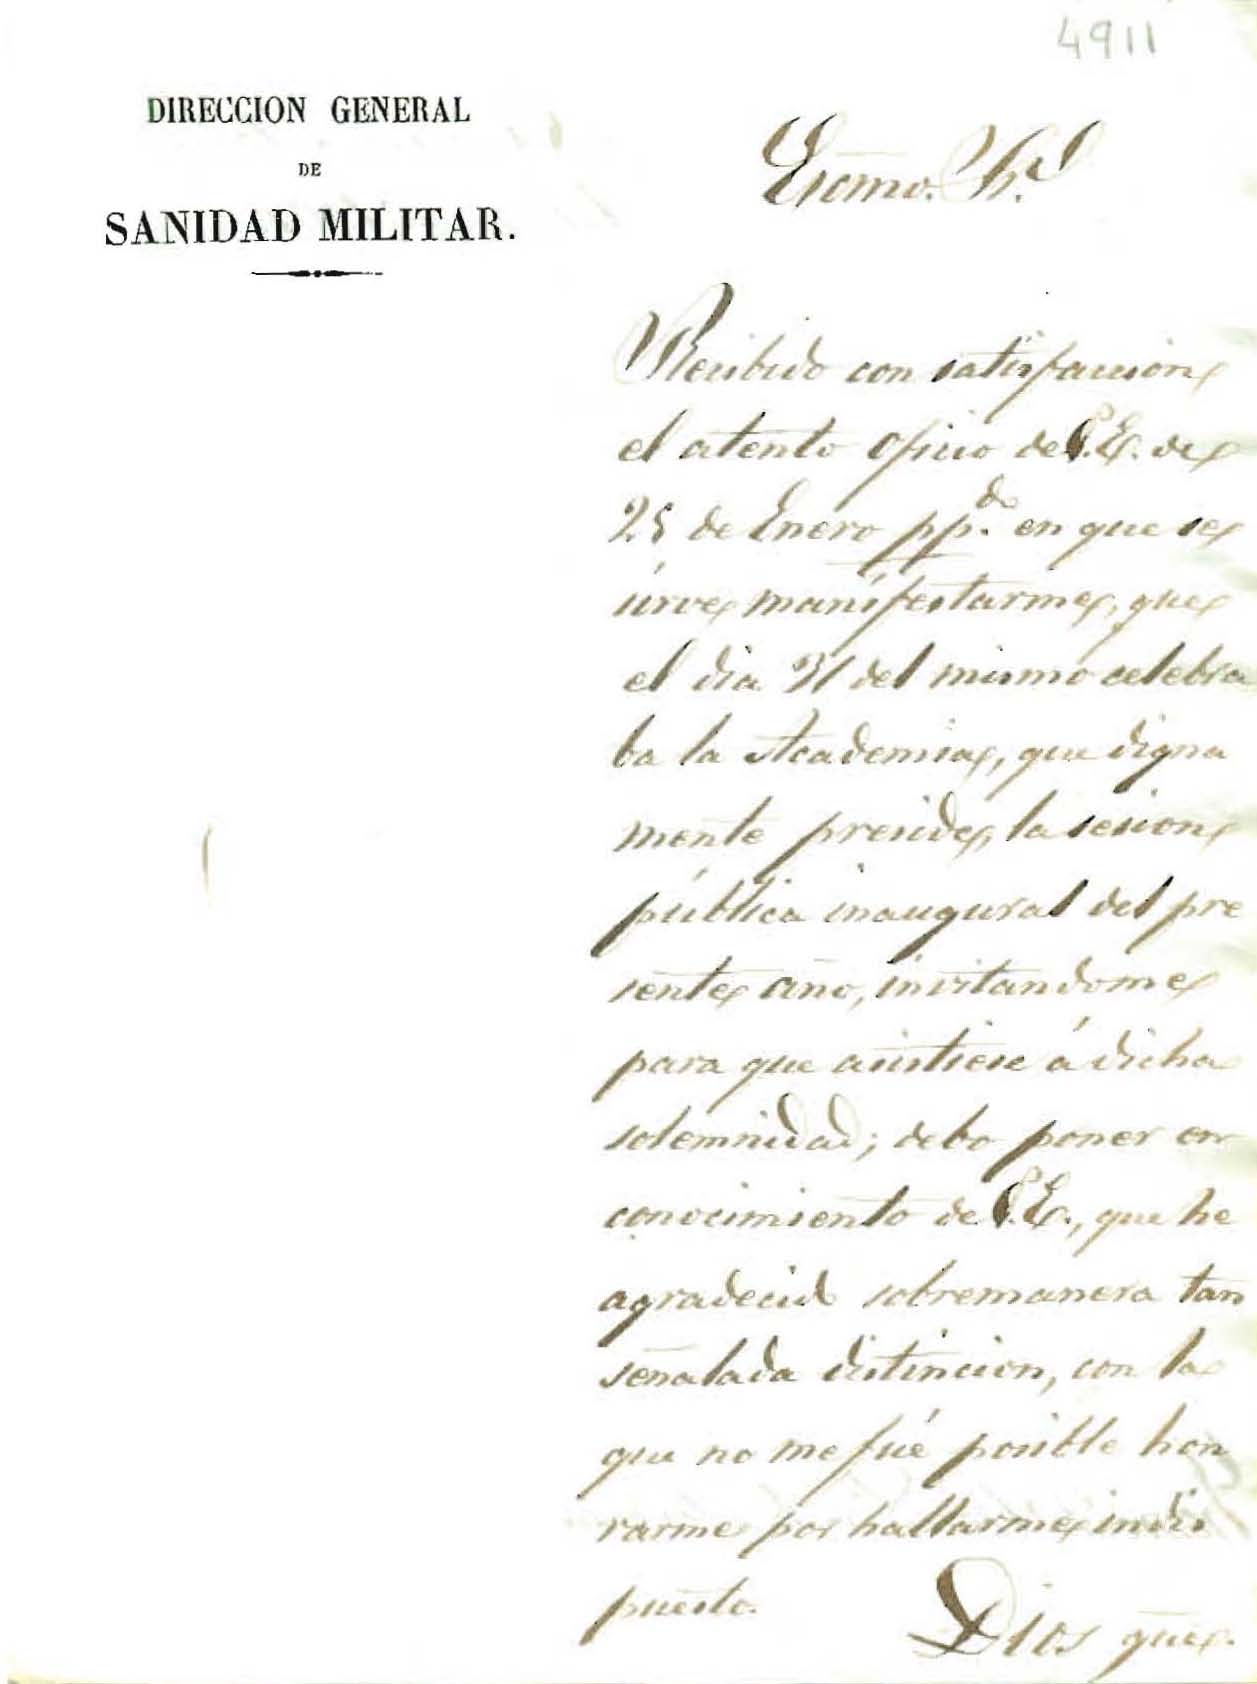 4911
DIRECCION GENERAL
DE
SANIDAD MILITAR.
Escmo. Sr.
Recibido con satisfaccion
el atento oficio de V.E. de
25 de Enero pp.do en que se
sirve manifestarme, que
el dia 31 del mismo celebra
ba la Academia, que digna
mente preside, la sesion
pública inaugural del pre
sente año, invitandome
para que asistiese á dicha
solemnidad; debo poner en
conocimiento de V.E., que he
agradecido sobremanera tan
señalada distincion, con la
que no me fué posible hon
rarme por hallarme indis
puesto.
Dios gue.